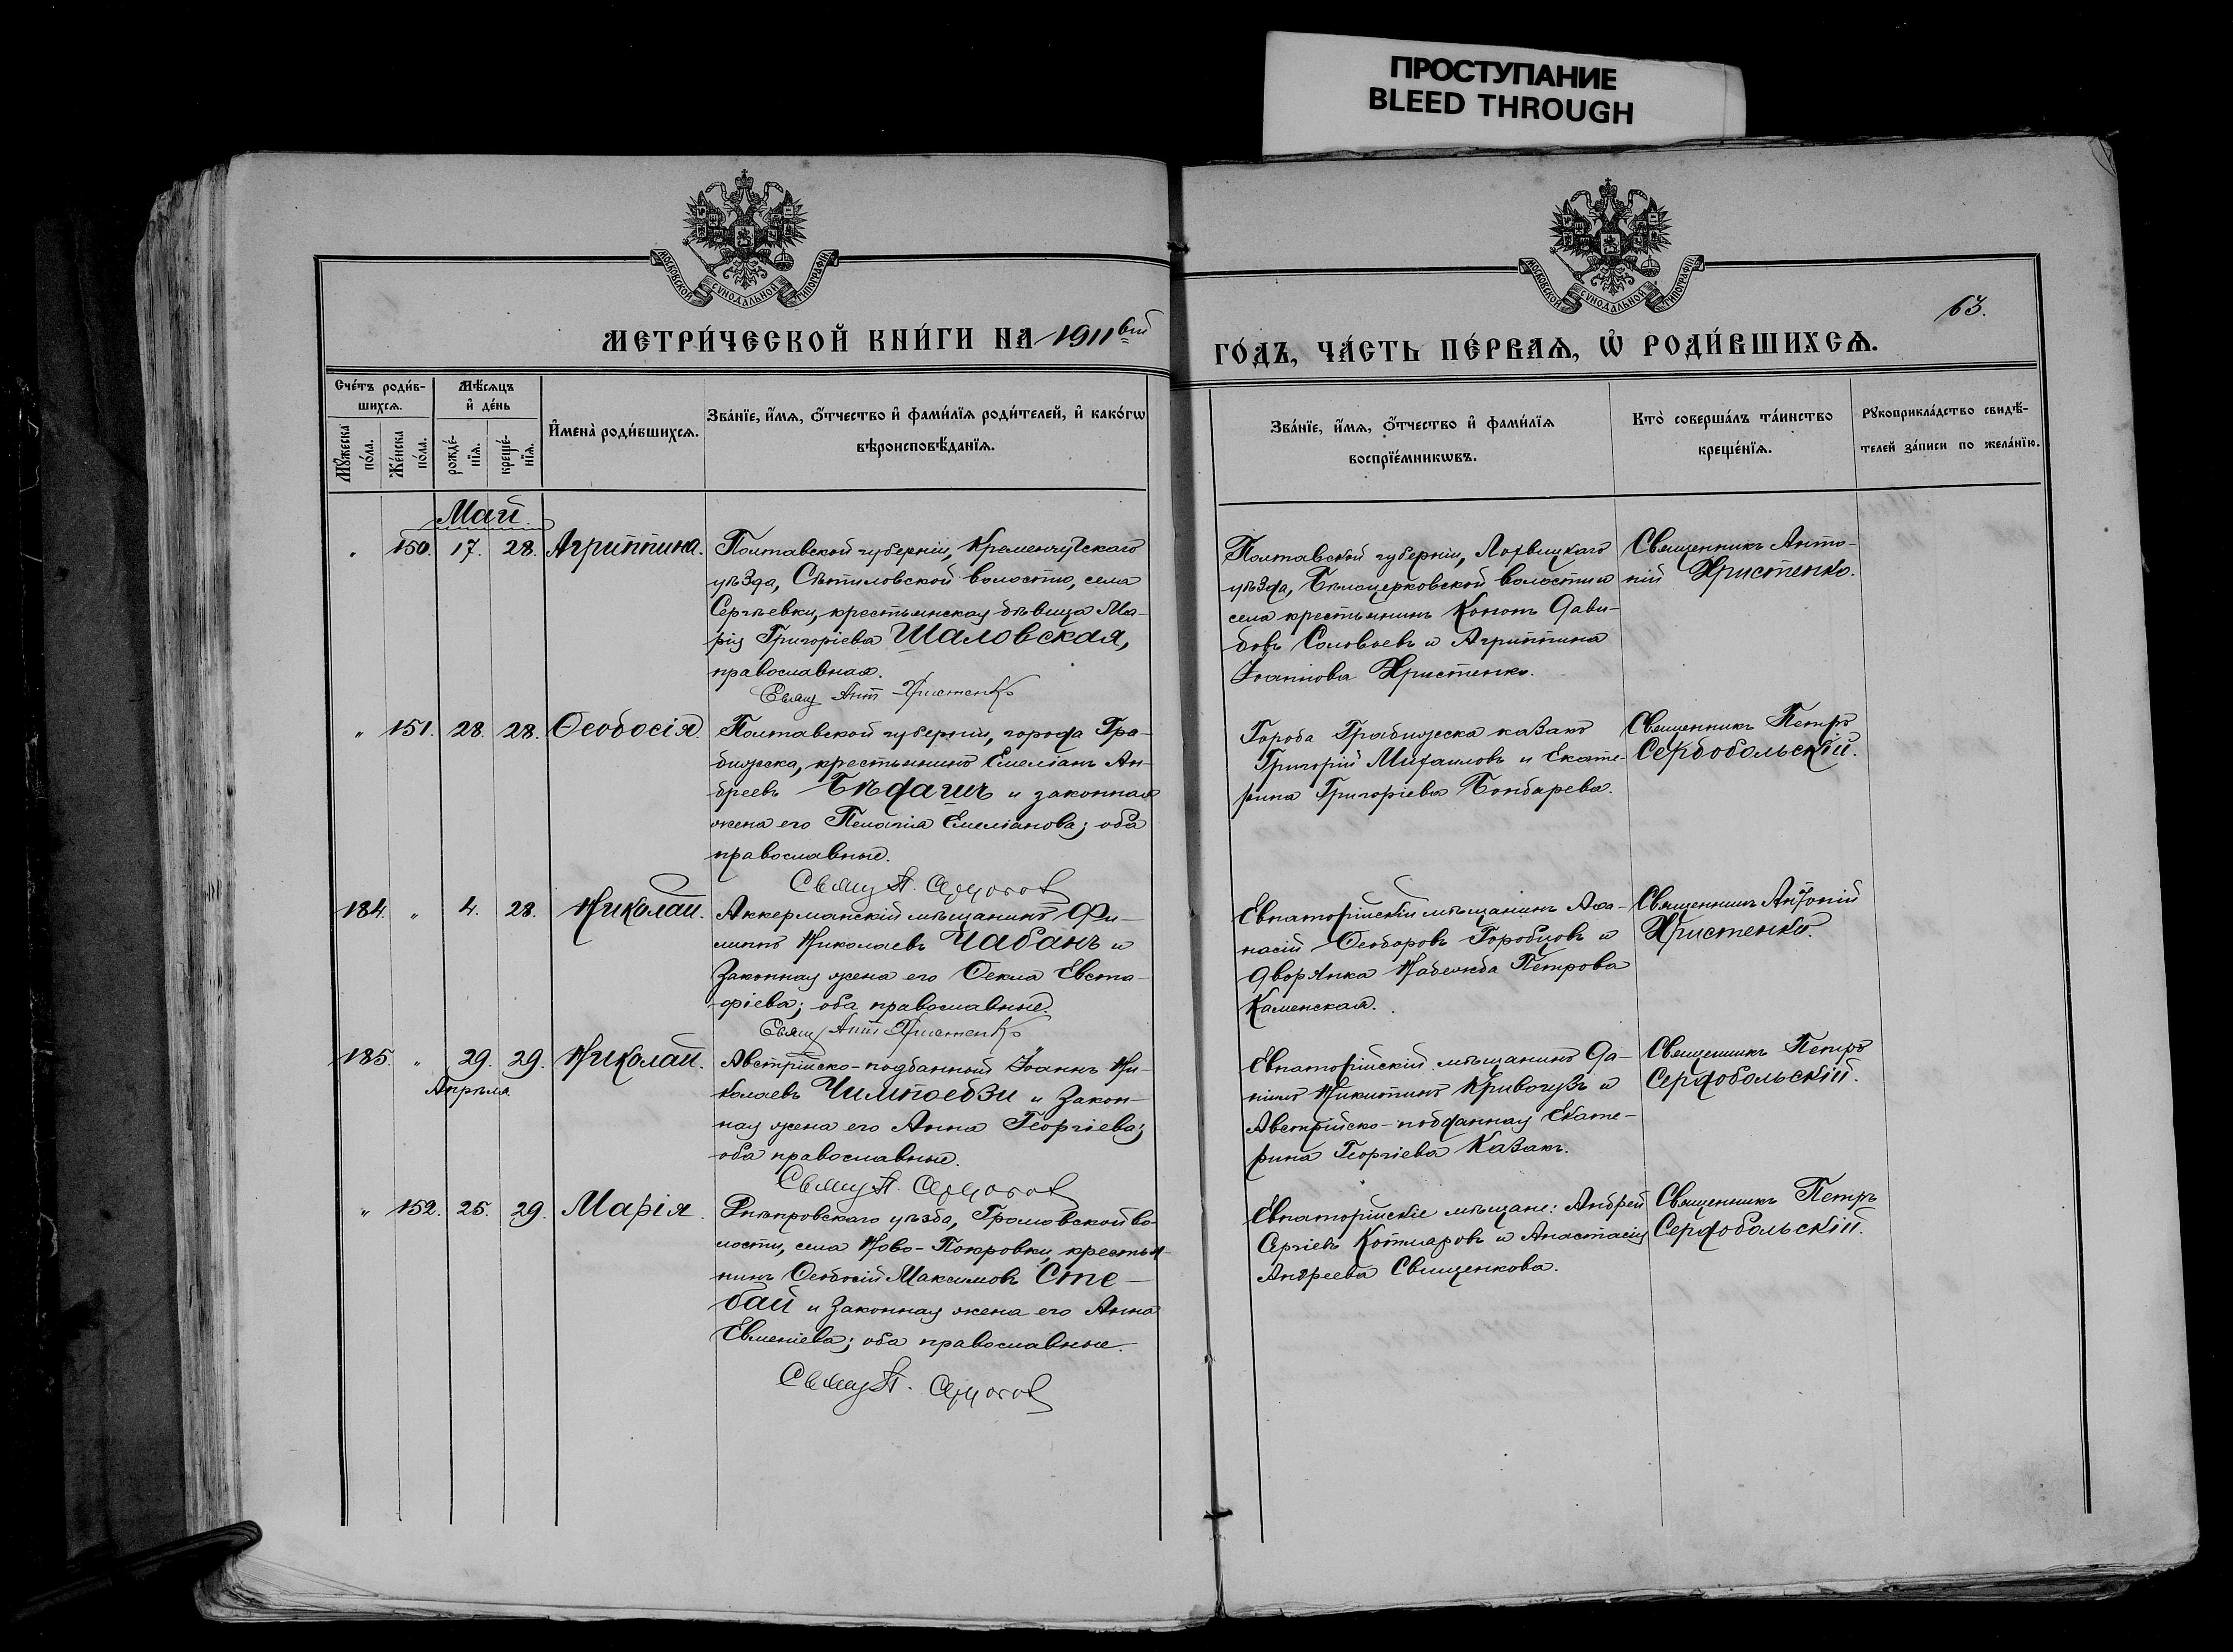 ПРОСТУПАНИЕ
BLEED THROUGH
МОСКОВСКОЙ СѴНОДАЛЬНОЙ ТИПОГРАФІИ
МОСКОВСКОЙ СѴНОДАЛЬНОЙ ТИПОГРАФІИ
63.
МЕТРИ́ЧЕСКОЙ КНИ́ГИ НА 1911вый
ГО́ДЪ, ЧА́СТЬ ПЕ́РВАѦ, Ѡ҆ РОДИ́ВШИХСѦ.
Сче́тъ роди́в-
шихсѧ.
Мꙋ́жеска по́ла.
Же́нска по́ла.
Мѣ́сѧцъ
и҆ де́нь
рожде́-
нїѧ.
креще́-
нїѧ.
И҆мена̀ роди́вшихсѧ.
Зва́нїе, и҆́мѧ, ѻ҆́тчество и҆ фами́лїѧ роди́телей, и҆ како́гѡ
вѣроисповѣ́данїѧ.
Зва́нїе, и҆́мѧ, ѻ҆́тчество и҆ фами́лїѧ
воспрїе́мникѡвъ.
Кто̀ соверша́лъ та́инство
креще́нїѧ.
Рꙋкоприкла́дство свидѣ́-
телей за́писи по жела́нїю.
Май
„ 150. 17. 28. Агриппина.
Полтавской губерніи, Кременчугскаго
уѣзда, волости, села
Сергѣевки, крестьянская дѣвица Ма-
рія Григоріева Шаловская,
православная.
Свящ Ант Христенко
Полтавской губерніи, Лохвицкаго
уѣзда, Бѣлоцерковской волости и
села крестьянинъ Кононъ Дави-
довъ Соловьевъ и Агриппина
Іоаннова Христенко.
Священникъ Анто-
ній Христенко.
„ 151. 28. 28. Ѳеодосія.
Полтавской губерніи, города Гра-
дижска, крестьянинъ Емеліанъ Ан-
дреевъ Бѣдашъ и законная
жена его Пелагія Емеліанова; оба
православные.
Свящ П.
Города Градижска казакъ
Григорій Михаиловъ и Екате-
рина Григоріева Бондарева.
Священникъ Петръ
Сердобольскій.
184. „ 4. 28. Николай.
Аккерманскій мѣщанинъ Фи-
липпъ Николаевъ Чабанъ и
законная жена его Ѳекла Евста-
фіева; оба православные.
Свящ Ант Христенко
Евпаторійскій мѣщанинъ Аѳа-
насій Ѳеодоровъ Горобцовъ и
дворянка Надежда Петрова
Каменская.
Священникъ Антоній
Христенко.
185. „ 29. 29. Николай.
Апрѣля
Австрійско-подданный Іоаннъ Ни-
колаевъ Чимпоедзи и закон-
ная жена его Анна Георгіева;
оба православные.
Свящ П.
Евпаторійскій мѣщанинъ Да-
ніилъ Никитинъ Кривогузъ и
Австрійско-подданная Екате-
рина Георгіева Казакъ.
Священникъ Петръ
Сердобольскій.
„ 152. 25. 29. Марія.
Днѣпровскаго уѣзда, Громовской во-
лости, села Ново-Покровки, крестья-
нинъ Ѳеодосій Максимовъ Сте-
бай и законная жена его Анна
Евменіева; оба православные.
Свящ П.
Евпаторійскіе мѣщане: Андрей
Сергіевъ Котляровъ и Анастасія
Андреева Свищенкова.
Священникъ Петръ
Сердобольскій.